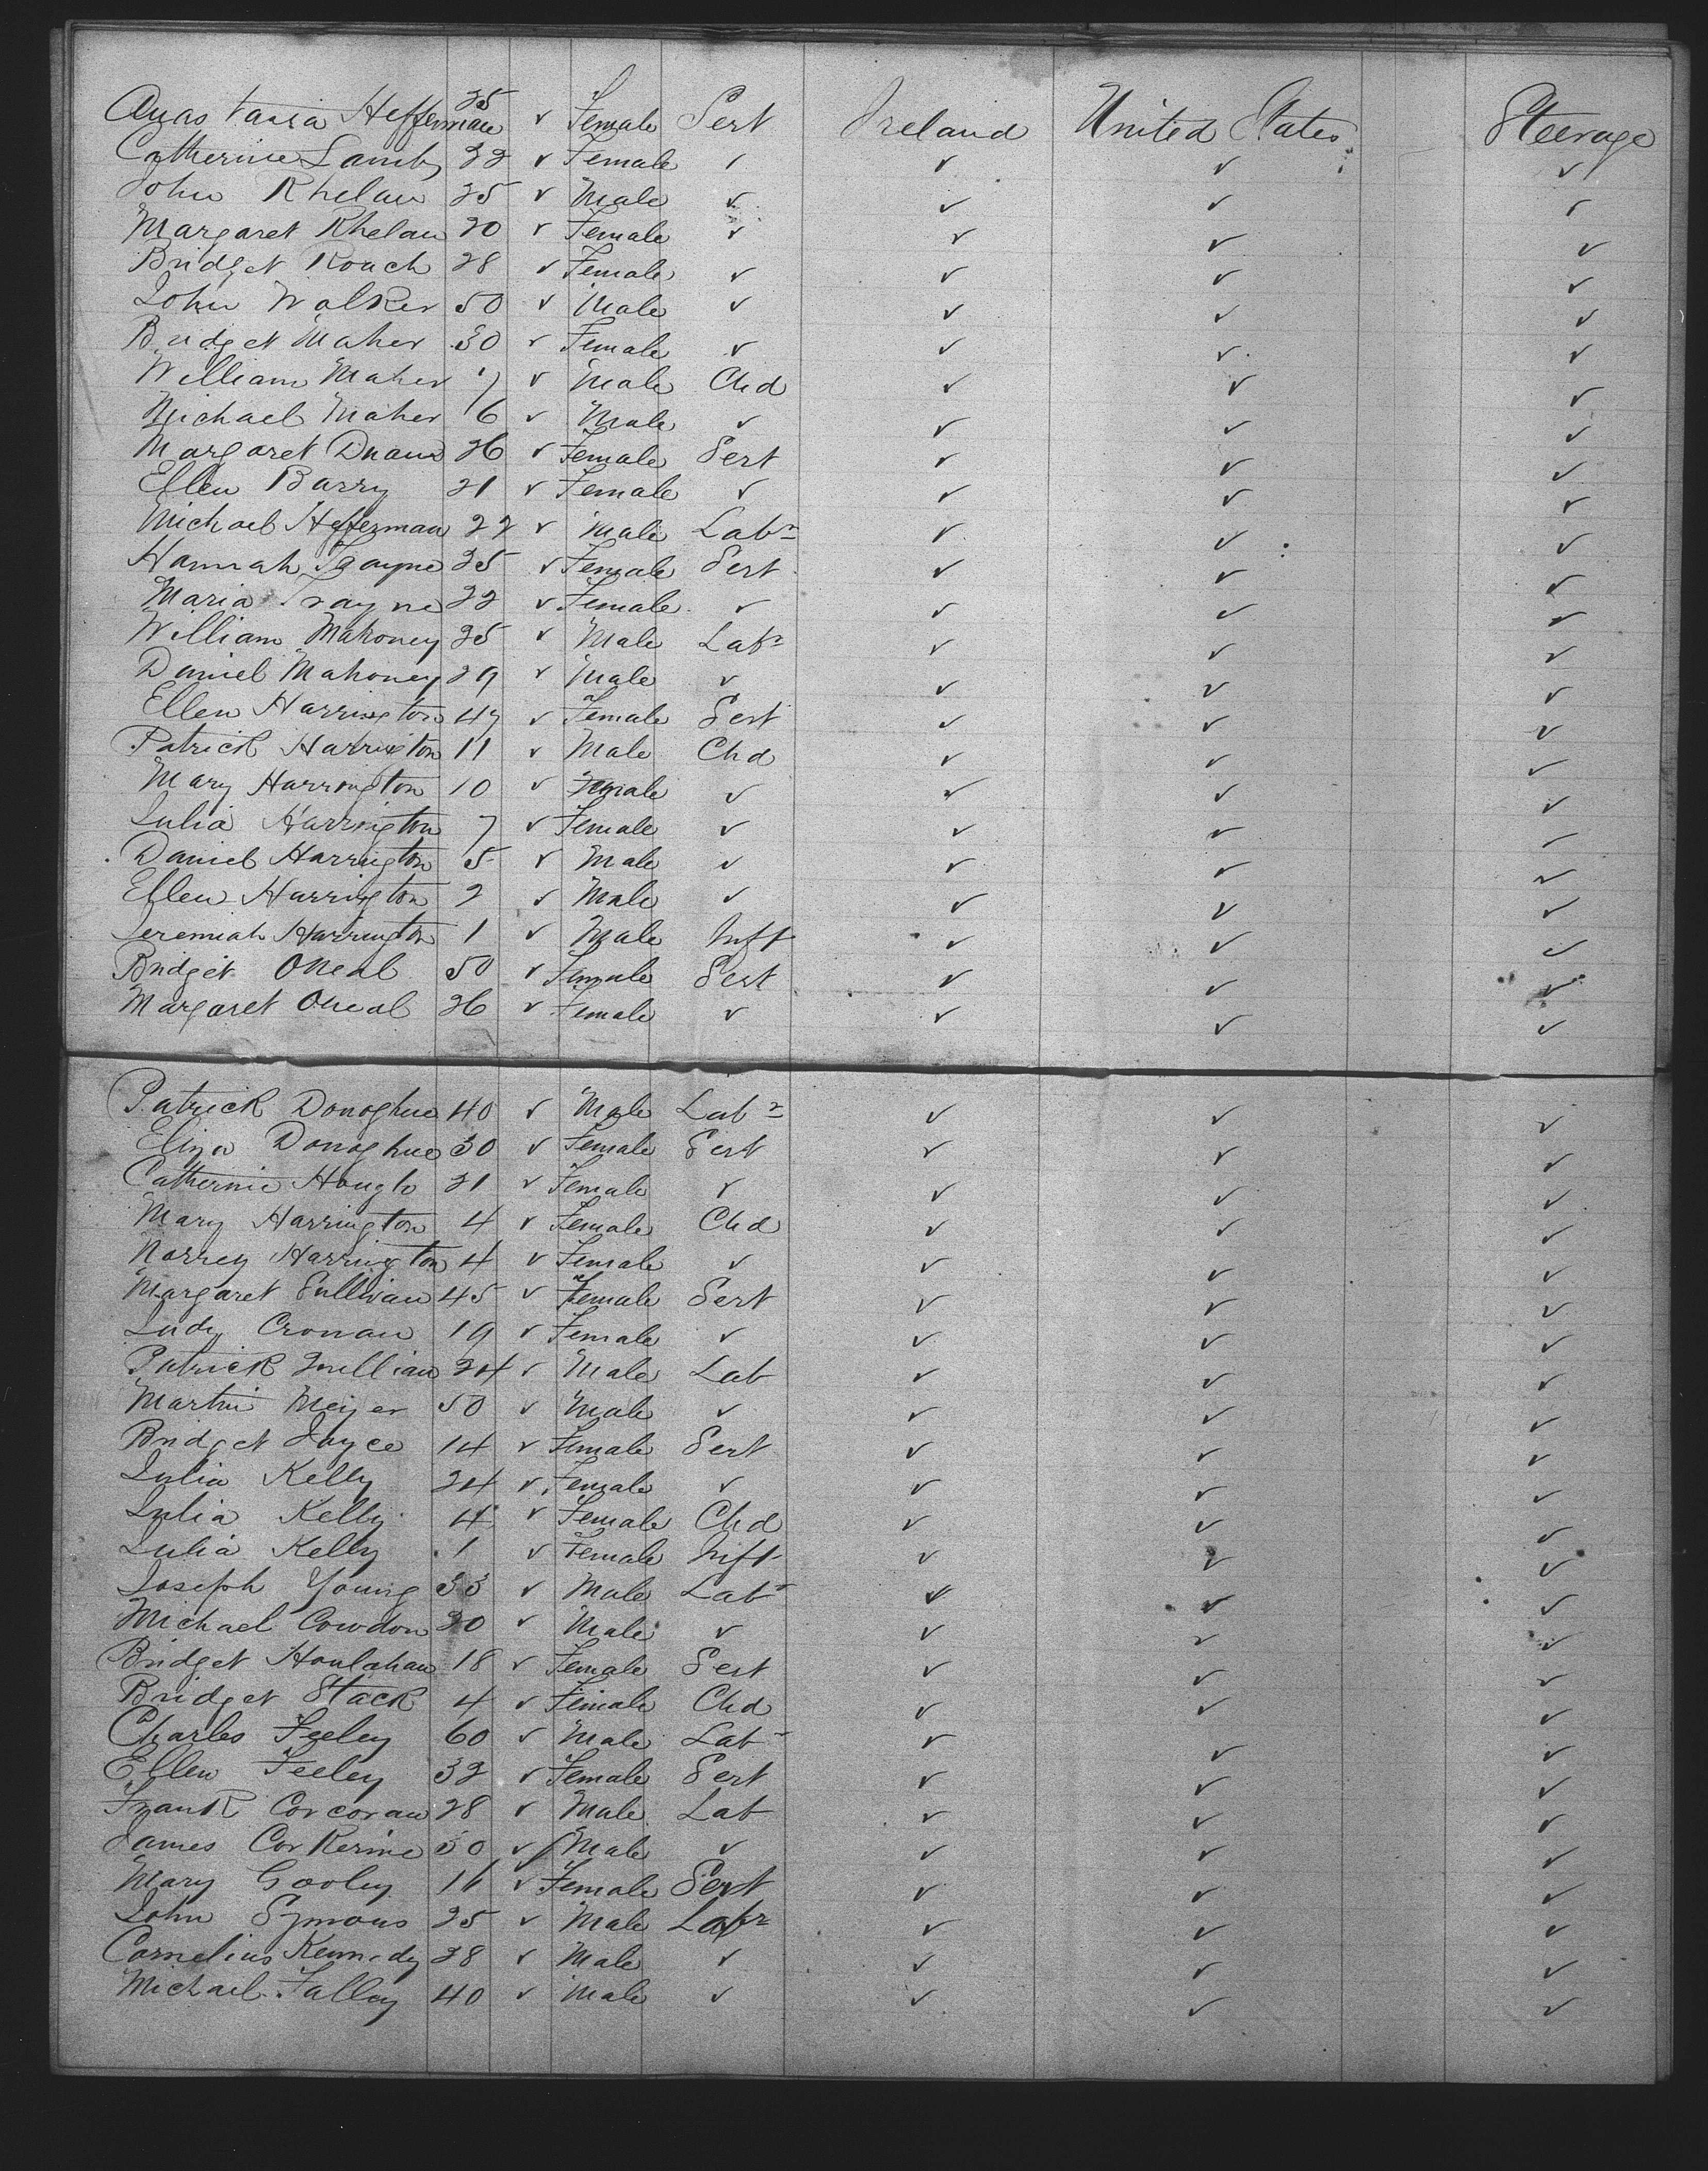 Anastasia Heffernan 25 ✓ Female Sert Ireland United States Steerage
Catherine Lamb 22 ✓ Female ✓ ✓ ✓ ✓
John Rhelan 25 ✓ Male ✓ ✓ ✓ ✓
Margaret Rhelan 20 ✓ Female ✓ ✓ ✓ ✓
Bridget Roach 28 ✓ Female ✓ ✓ ✓ ✓
John Walker 50 ✓ Male ✓ ✓ ✓ ✓
Bridget Maher 30 ✓ Female ✓ ✓ ✓ ✓
William Maher 7 ✓ Male Chd ✓ ✓ ✓
Michael Maher 6 ✓ Male ✓ ✓ ✓ ✓
Margaret Duane 26 ✓ Female Sert ✓ ✓ ✓
Ellen Barry 21 ✓ Female ✓ ✓ ✓ ✓
Michael Hefferman 22 ✓ Male Labr ✓ ✓ ✓
Hannah 25 ✓ Female Sert ✓ ✓ ✓
Maria Trayne 22 ✓ Female ✓ ✓ ✓ ✓
William Mahoney 25 ✓ Male Labr ✓ ✓ ✓
Daniel Mahoney 29 ✓ Male ✓ ✓ ✓ ✓
Ellen Harrington 47 ✓ Female Sert ✓ ✓ ✓
Patrick Harrington 11 ✓ Male Chd ✓ ✓ ✓
Mary Harrington 10 ✓ Female ✓ ✓ ✓ ✓
Julia Harrington 7 ✓ Female ✓ ✓ ✓ ✓
Daniel Harrington 5 ✓ Male ✓ ✓ ✓ ✓
Ellen Harrington 2 ✓ Male ✓ ✓ ✓ ✓
Jeremiah Harrington 1 ✓ Male Inft ✓ ✓ ✓
Bridget ONeal 50 ✓ Female Sert ✓ ✓ ✓
Margaret ONeal 26 ✓ Female ✓ ✓ ✓ ✓
Patrick Donoghue 40 ✓ Male Labr ✓ ✓ ✓
Eliza Donoghue 30 ✓ Female Sert ✓ ✓ ✓
Catherine Hough 21 ✓ Female ✓ ✓ ✓ ✓
Mary Harrington 4 ✓ Female Chd ✓ ✓ ✓
Norrey Harrington 4 ✓ Female ✓ ✓ ✓ ✓
Margaret Sullivan 45 ✓ Female Sert ✓ ✓ ✓
Judy Cronan 19 ✓ Female ✓ ✓ ✓ ✓
Patrick 24 ✓ Male Lab ✓ ✓ ✓
Martin Meijer 50 ✓ Male ✓ ✓ ✓ ✓
Bridget Joyce 14 ✓ Female Sert ✓ ✓ ✓
Julia Kelly 24 ✓ Female ✓ ✓ ✓ ✓
Julia Kelly 4 ✓ Female Chd ✓ ✓ ✓
Julia Kelly 1 ✓ Female Inft ✓ ✓ ✓
Joseph Young 33 ✓ Male Labr ✓ ✓ ✓
Michael Cowdon 20 ✓ Male ✓ ✓ ✓ ✓
Bridget Houlahan 18 ✓ Female Sert ✓ ✓ ✓
Bridget Stack 4 ✓ Female Chd ✓ ✓ ✓
Charles Feeley 60 ✓ Male Labr ✓ ✓ ✓
Ellen Feeley 32 ✓ Female Sert ✓ ✓ ✓
Frank Corcoran 28 ✓ Male Lab ✓ ✓ ✓
James Corkerine 30 ✓ Male ✓ ✓ ✓ ✓
Mary Gooley 16 ✓ Female Sert ✓ ✓ ✓
John Symons 25 ✓ Male Labr ✓ ✓ ✓
Cornelius Kennedy 28 ✓ Male ✓ ✓ ✓ ✓
Michael Falley 40 ✓ Male ✓ ✓ ✓ ✓